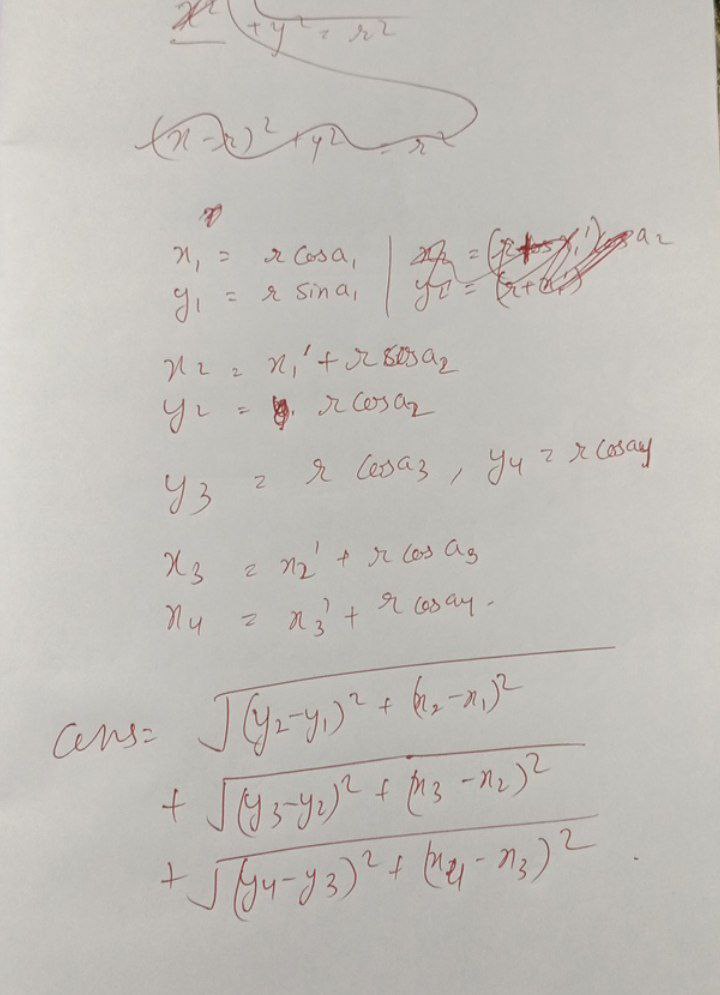 x² + y² = r²
(x-r)² + y² = r²
x₁ = r cosa₁
y₁ = r sina₁
x₂ = x₁' + r cosa₂
y₂ = r cosa₂
y₃ = r cosa₃, y₄ = r cosa₄
x₃ = x₂' + r cos a₃
x₄ = x₃' + r cosa₄.
ans = √(y₂-y₁)² + (x₂-x₁)²
+ √(y₃-y₂)² + (x₃-x₂)²
+ √(y₄-y₃)² + (x₄-x₃)².